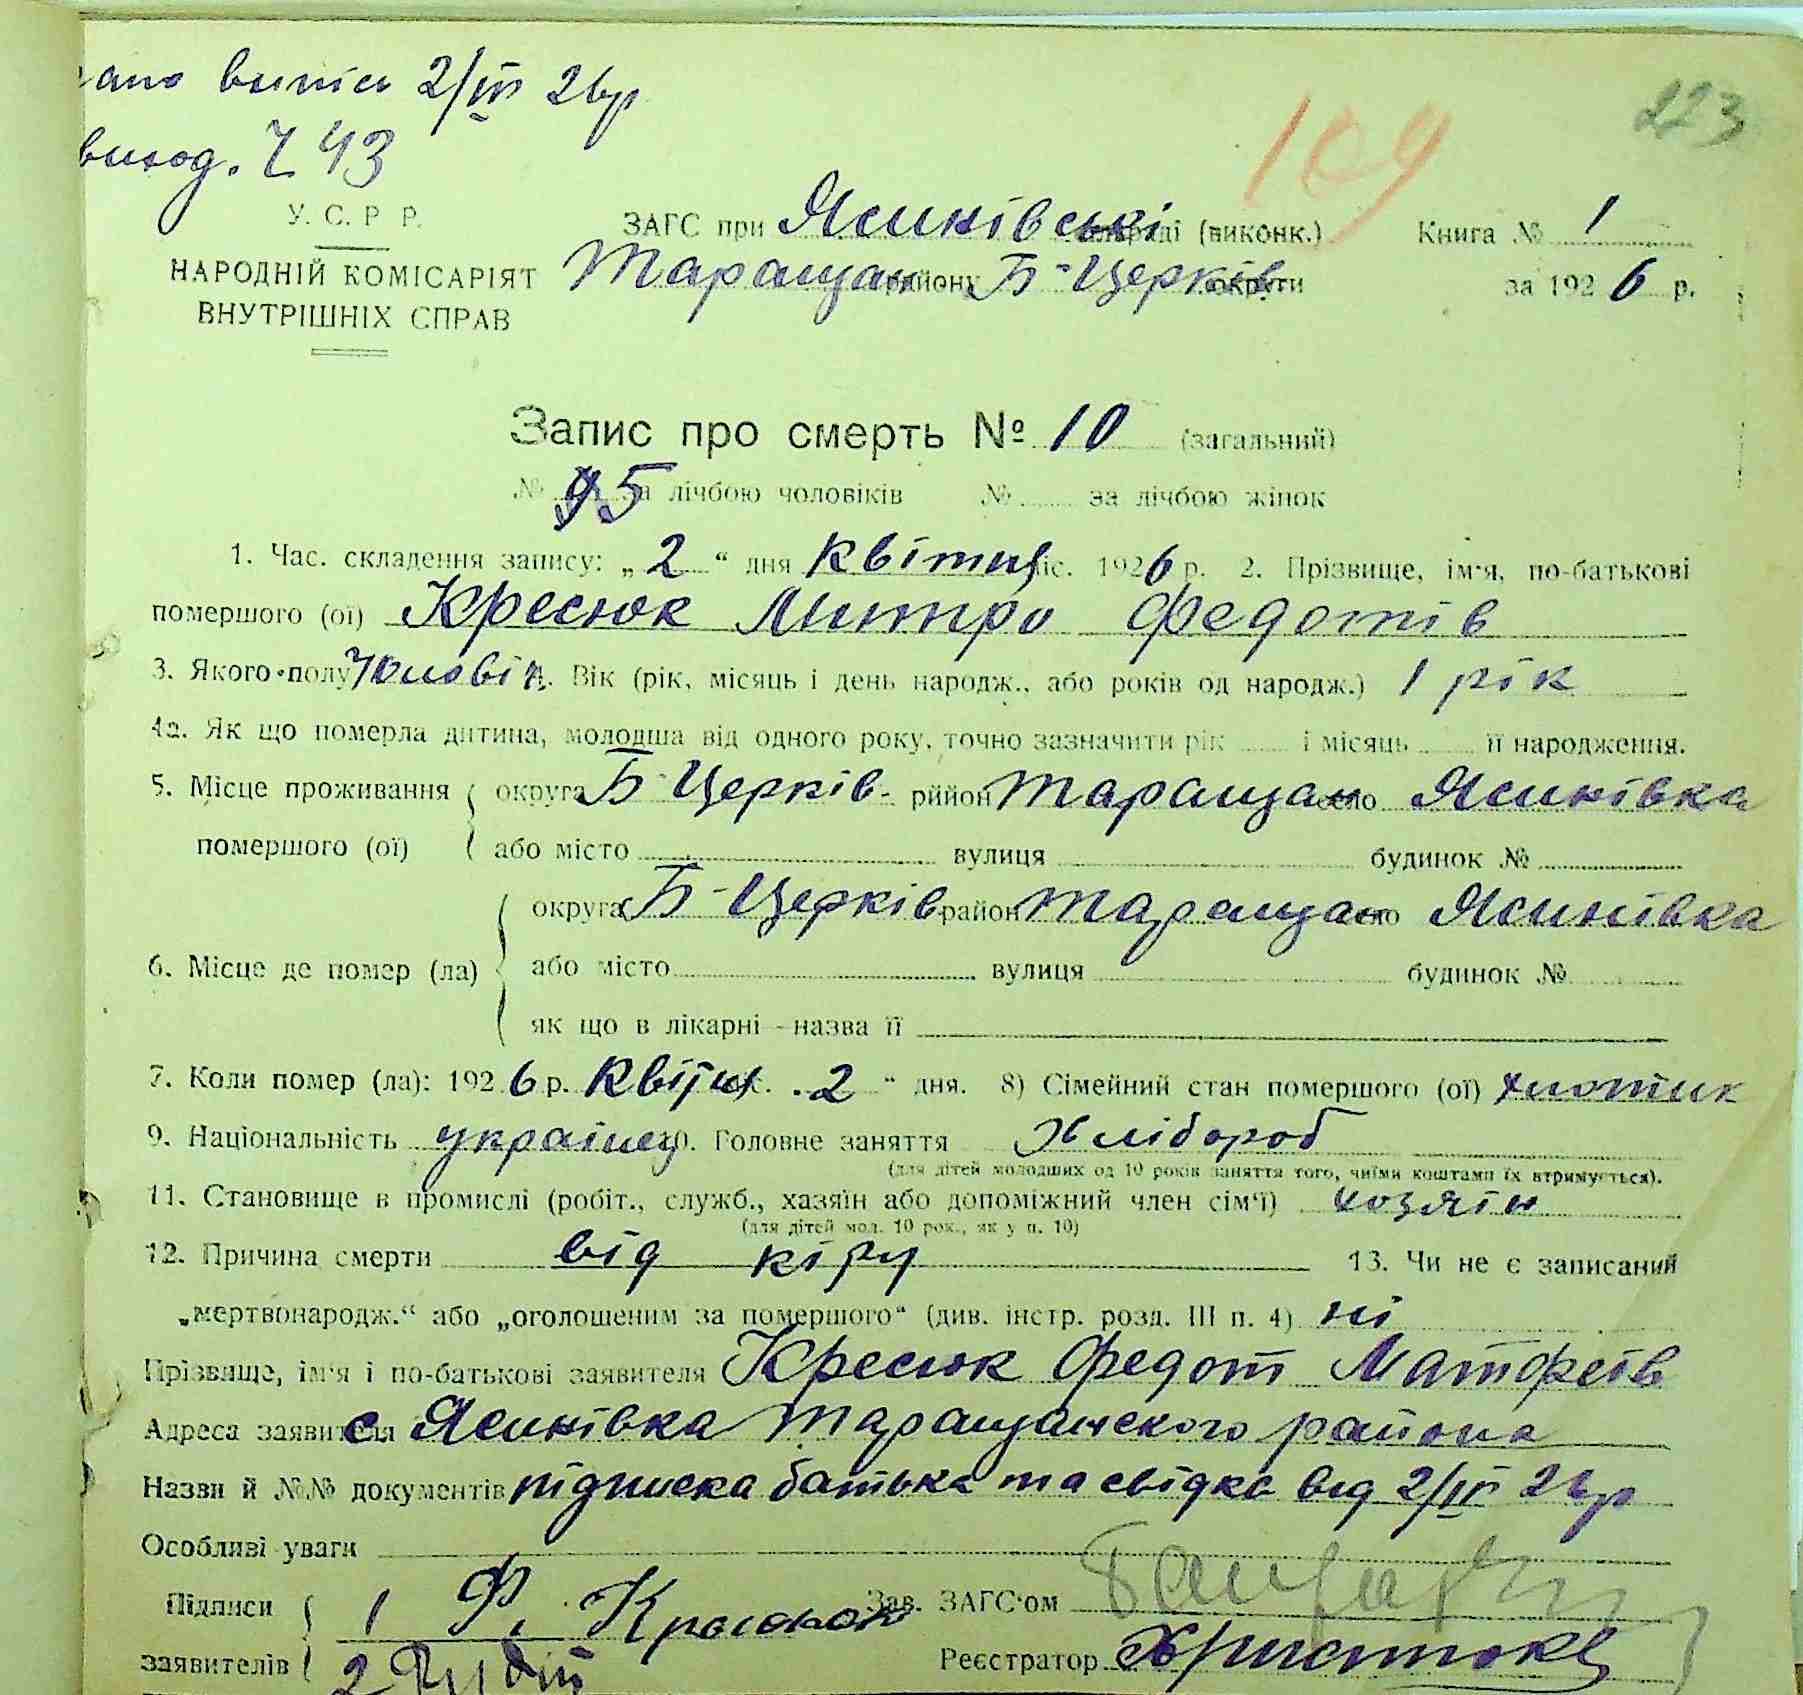 випис 2/IV 26р
виход. Ч 43
109
223
У. С. Р Р.
НАРОДНІЙ КОМІСАРІЯТ
ВНУТРІШНІХ СПРАВ
ЗАГС при Ясинівські сільраді (виконк.)
Таращан району Б-Церків округи
Книга № 1
за 1926 р.
Запис про смерть № 10 (загальний)
№ 5 за лічбою чоловіків № за лічбою жінок
1. Час. складення запису: „2“ дня Квітня міс. 1926 р. 2. Прізвище, ім'я, по-батькові
помершого (ої) Кресюк Митро Федотів
3. Якого полу Чоловік. Вік (рік, місяць і день народж., або років од народж.) 1 рік
4а. Як що померла дитина, молодша від одного року, точно зазначити рік і місяць її народження.
5. Місце проживання округа Б-Церків- рййон Таращан село Ясинівка
помершого (ої) або місто вулиця будинок №
округа Б-Церків район Таращан село Ясинівка
6. Місце де помер (ла) або місто вулиця будинок №
як що в лікарні - назва її
7. Коли помер (ла): 1926 р. Квітн міс. „2“ дня. 8) Сімейний стан помершого (ої)
9. Національність українец 10. Головне заняття Хлібороб
(для дітей молодших од 10 років заняття того, чиїми коштами їх втримується).
11. Становище в промислі (робіт., служб., хазяїн або допоміжний член сім'ї) хозяїн
(для дітей мол. 10 рок., як у п. 10)
12. Причина смерти від кіру 13. Чи не є записаний
„мертвонародж.“ або „оголошеним за помершого“ (див. інстр. розд. III п. 4) ні
Прізвище, ім'я і по-батькові заявителя Кресюк Федот Матфеїв
Адреса заявителя с Ясинівка Таращанского района
Назви й №№ документів підписка батька та свідка від 2/IV 26р
Особливі уваги
Підписи 1 Ф. Кресюк Зав. ЗАГС'ом
заявителів 2 Реєстратор